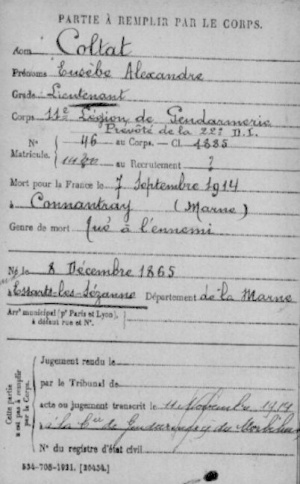 PARTIE À REMPLIR PAR LE CORPS.
Nom Coltat
Prénoms Eusèbe Alexandre
Grade Lieutenant
Corps 11e Légion de Gendarmerie
Prévoté de la 22e D.I.
N° 46 au Corps. — Cl. 1885
Matricule. au Recrutement ?
Mort pour la France le 7 Septembre 1914
à Connantray (Marne)
Genre de mort Tué à l'ennemi
Né le 8 Décembre 1865
à Essarts-les-Sézanne Département de la Marne
Arrt municipal (pr Paris et Lyon),
à défaut rue et N°.
Cette partie
n'est pas à remplir
par le Corps.
Jugement rendu le
par le Tribunal de
acte ou jugement transcrit le 11 Novembre 1914
à la Cie de Gendarmerie du Morbihan
N° du registre d'état civil
534-708-1921. [26434.]